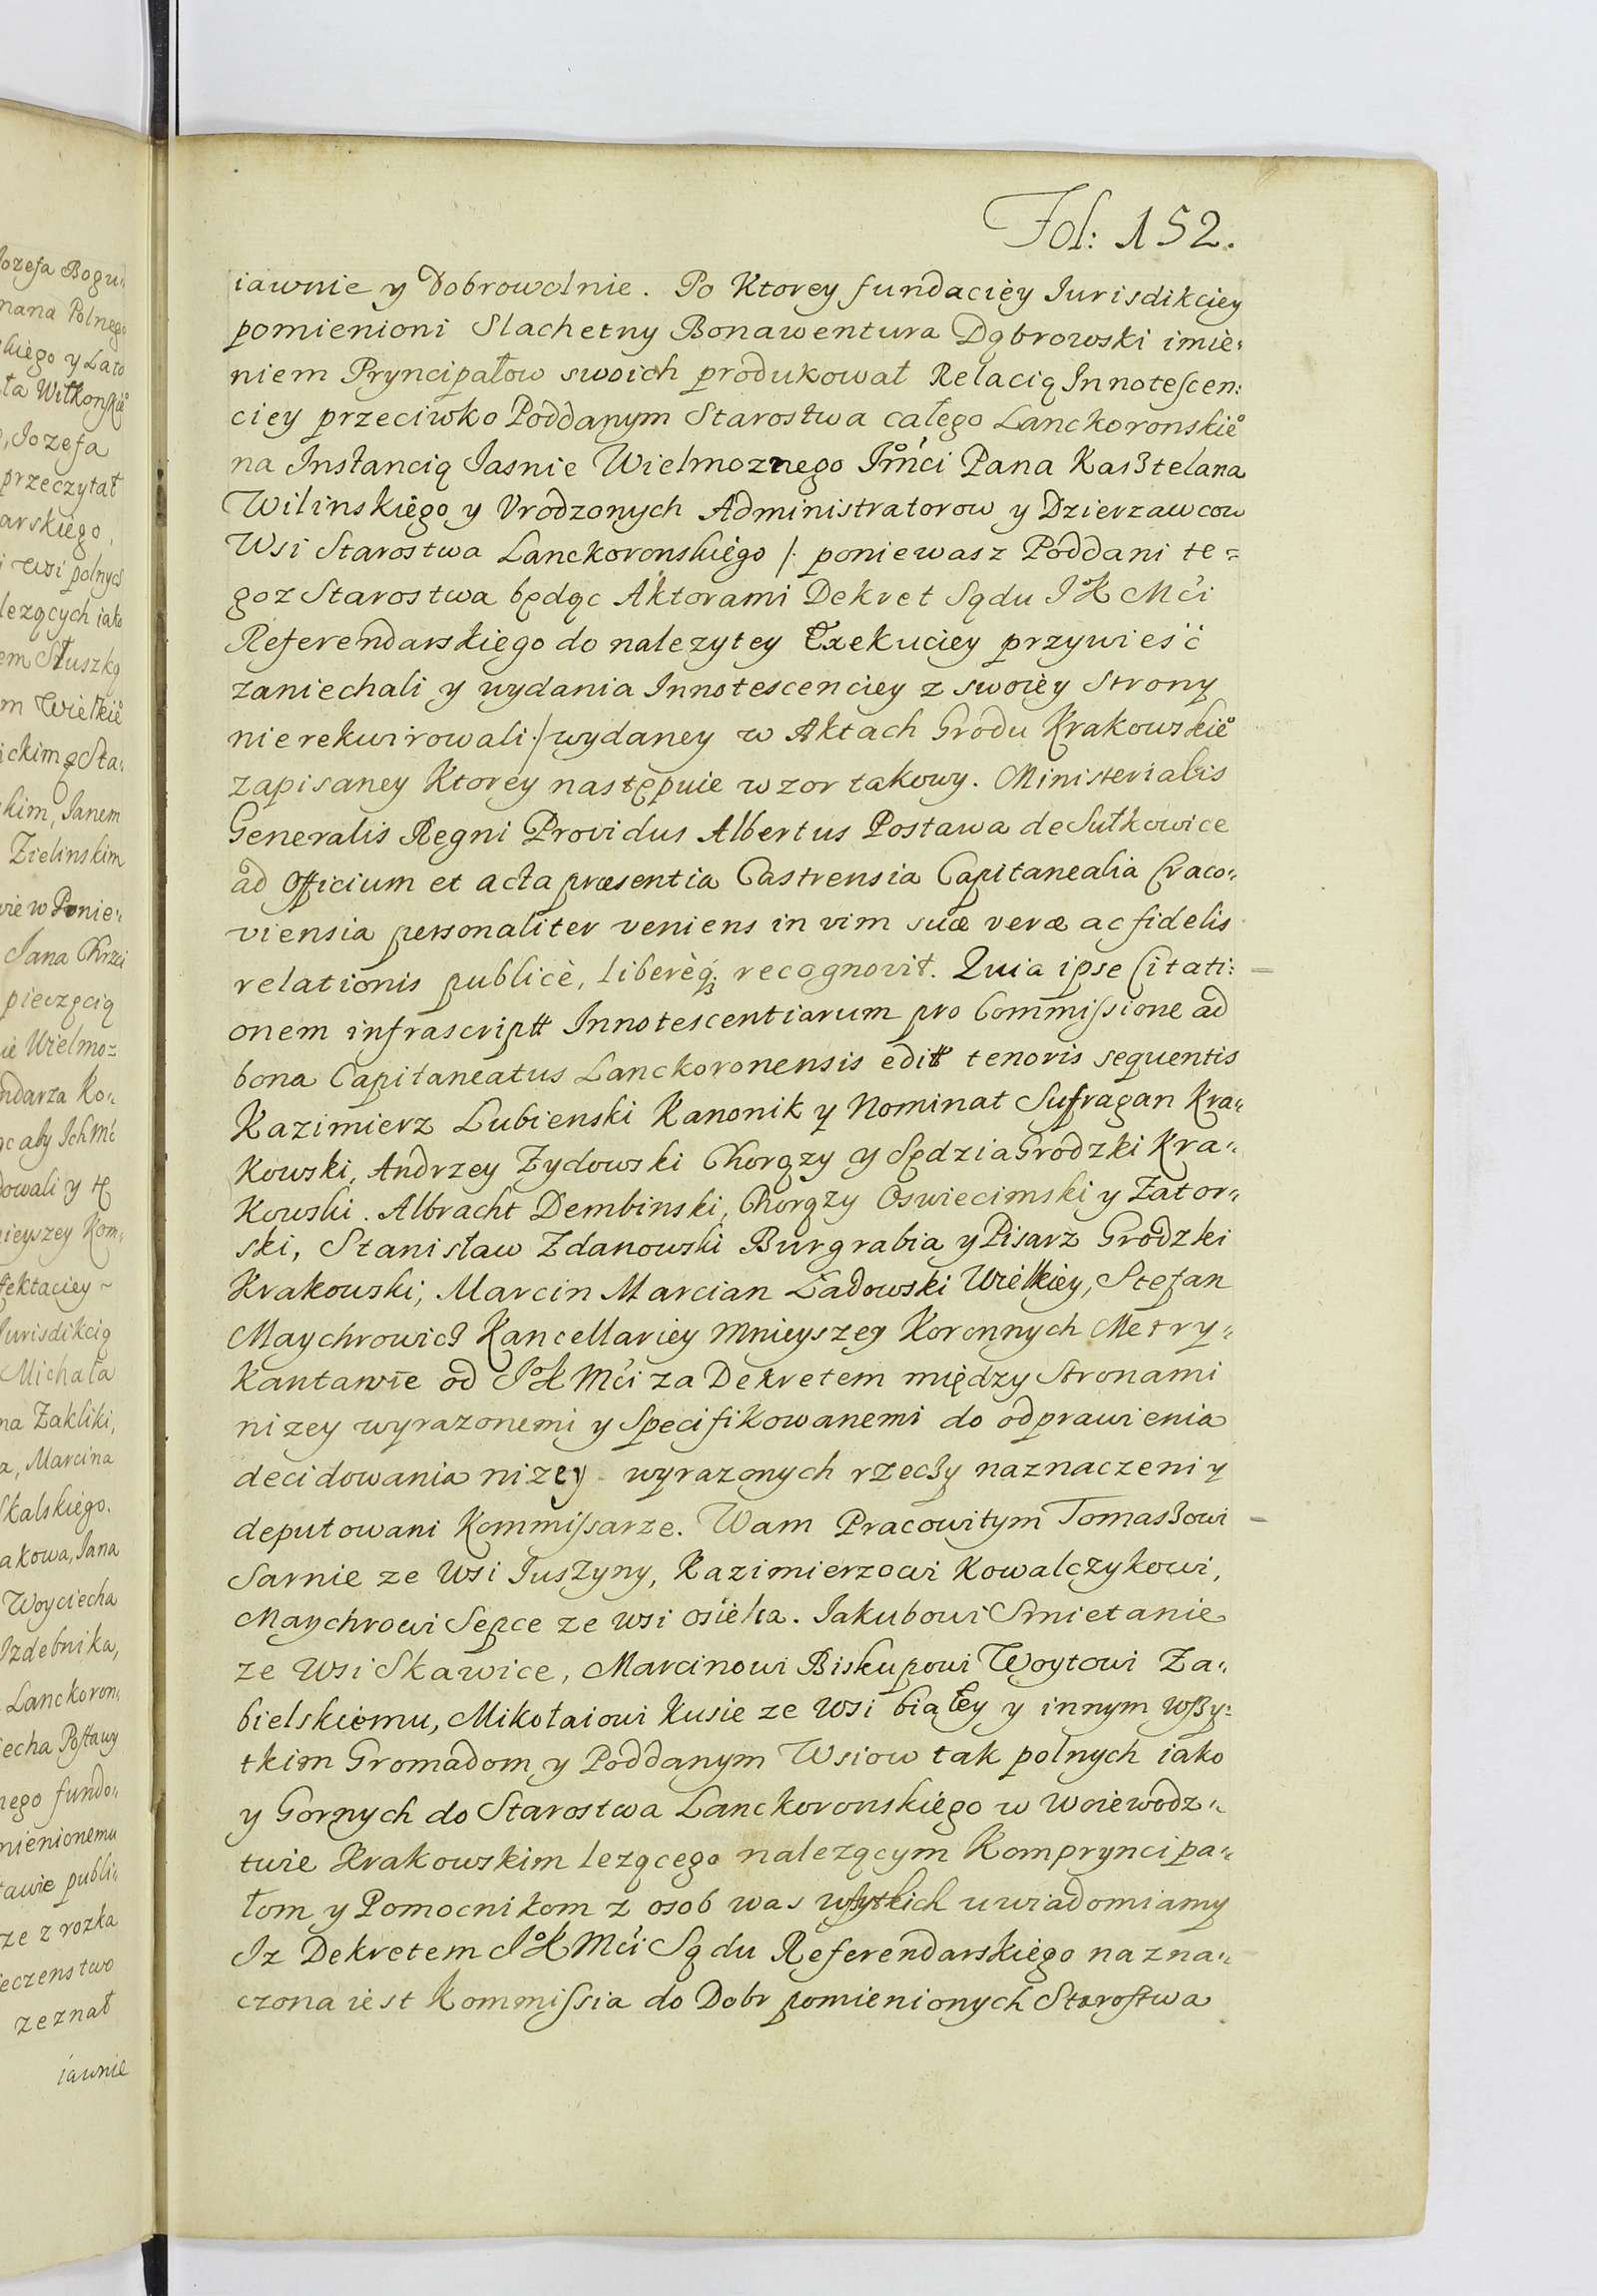 Fol: 152.
iawnie y Dobrowolnie. Po Ktorey fundaciey Iurisdikciey
pomienioni Slachetny Bonawentura Dąbrowski imie„
niem Pryncipałow swoich produkował Relacią Innotescen:
ciey przeciwko Poddanym Starostwa całego Lanckoronskie͛
na Instancią Iasnie Wielmoznego Im̊ci Pana Kasztelana
Wilinskiego y Vrodzonych Administratorow y Dzierzawcow
Wsi Starostwa Lanckoronskiego /: poniewasz Poddani te=
goz Starostwa będąc Aktorami Dekret Sądu I°K Mći
Referendarskiego do nalezytey Exekuciey przywieść
zaniechali y wydania Innotescenciey z swoiey Strony
nie rekwirowali :/ wydaney w Aktach Grodu Krakowskie͛
zapisaney Ktorey następuie wzor takowy. Ministerialis
Generalis Regni Providus Albertus Postawa de Sułkowice
ad Officium et acta præsentia Castrensia Capitanealia Craco„
viensia personaliter veniens in vim suæ veræ ac fidelis
relationis publicè, liberèq; recognovit. Quia ipse Citati:
onem infrascriptt Innotescentiarum pro Commissione ad
bona Capitaneatus Lanckoronensis editt tenoris sequentis
Kazimierz Lubienski Kanonik y Nominat Sufragan Kra„
kowski, Andrzey Zydowski Chorązy y Sędzia Grodzki Kra„
kowski. Albracht Dembinski, Chorązy Oswiecimski y Zator„
ski, Stanisław Zdanowski Burgrabia y Pisarz Grodzki
Krakowski, Marcin Marcian Ładowski Wielkiey, Stefan
Maychrowicz Kancellariey Mnieyszey Koronnych Metry„
kantawie od I°K Mći za Dekretem między Stronami
nizey wyrazonemi y Specifikowanemi do odprawienia
decidowania nizey wyrazonych rzeczy naznaczeni y
deputowani Kommissarze. Wam Pracowitym Tomaszowi
Sarnie ze Wsi Iuszyny, Kazimierzowi Kowalczykowi,
Maychrowi Sepce ze wsi osieka. Iakubowi Smietanie
ze Wsi Skawice, Marcinowi Biskupowi Woytowi Za„
bielskiemu, Mikołaiowi Kusie ze Wsi białey y innym wszy:
tkim Gromadom y Poddanym Wsiow tak polnych iako
y Gornych do Starostwa Lanckoronskiego w Woiewodz„
twie Krakowskim lezącego nalezącym Kompryncipa„
łom y Pomocnikom z osob was wszytkich uwiadomiamy
Iz Dekretem I°K Mći Sądu Referendarskiego nazna„
czona iest Kommissia do Dobr pomienionych Starostwa